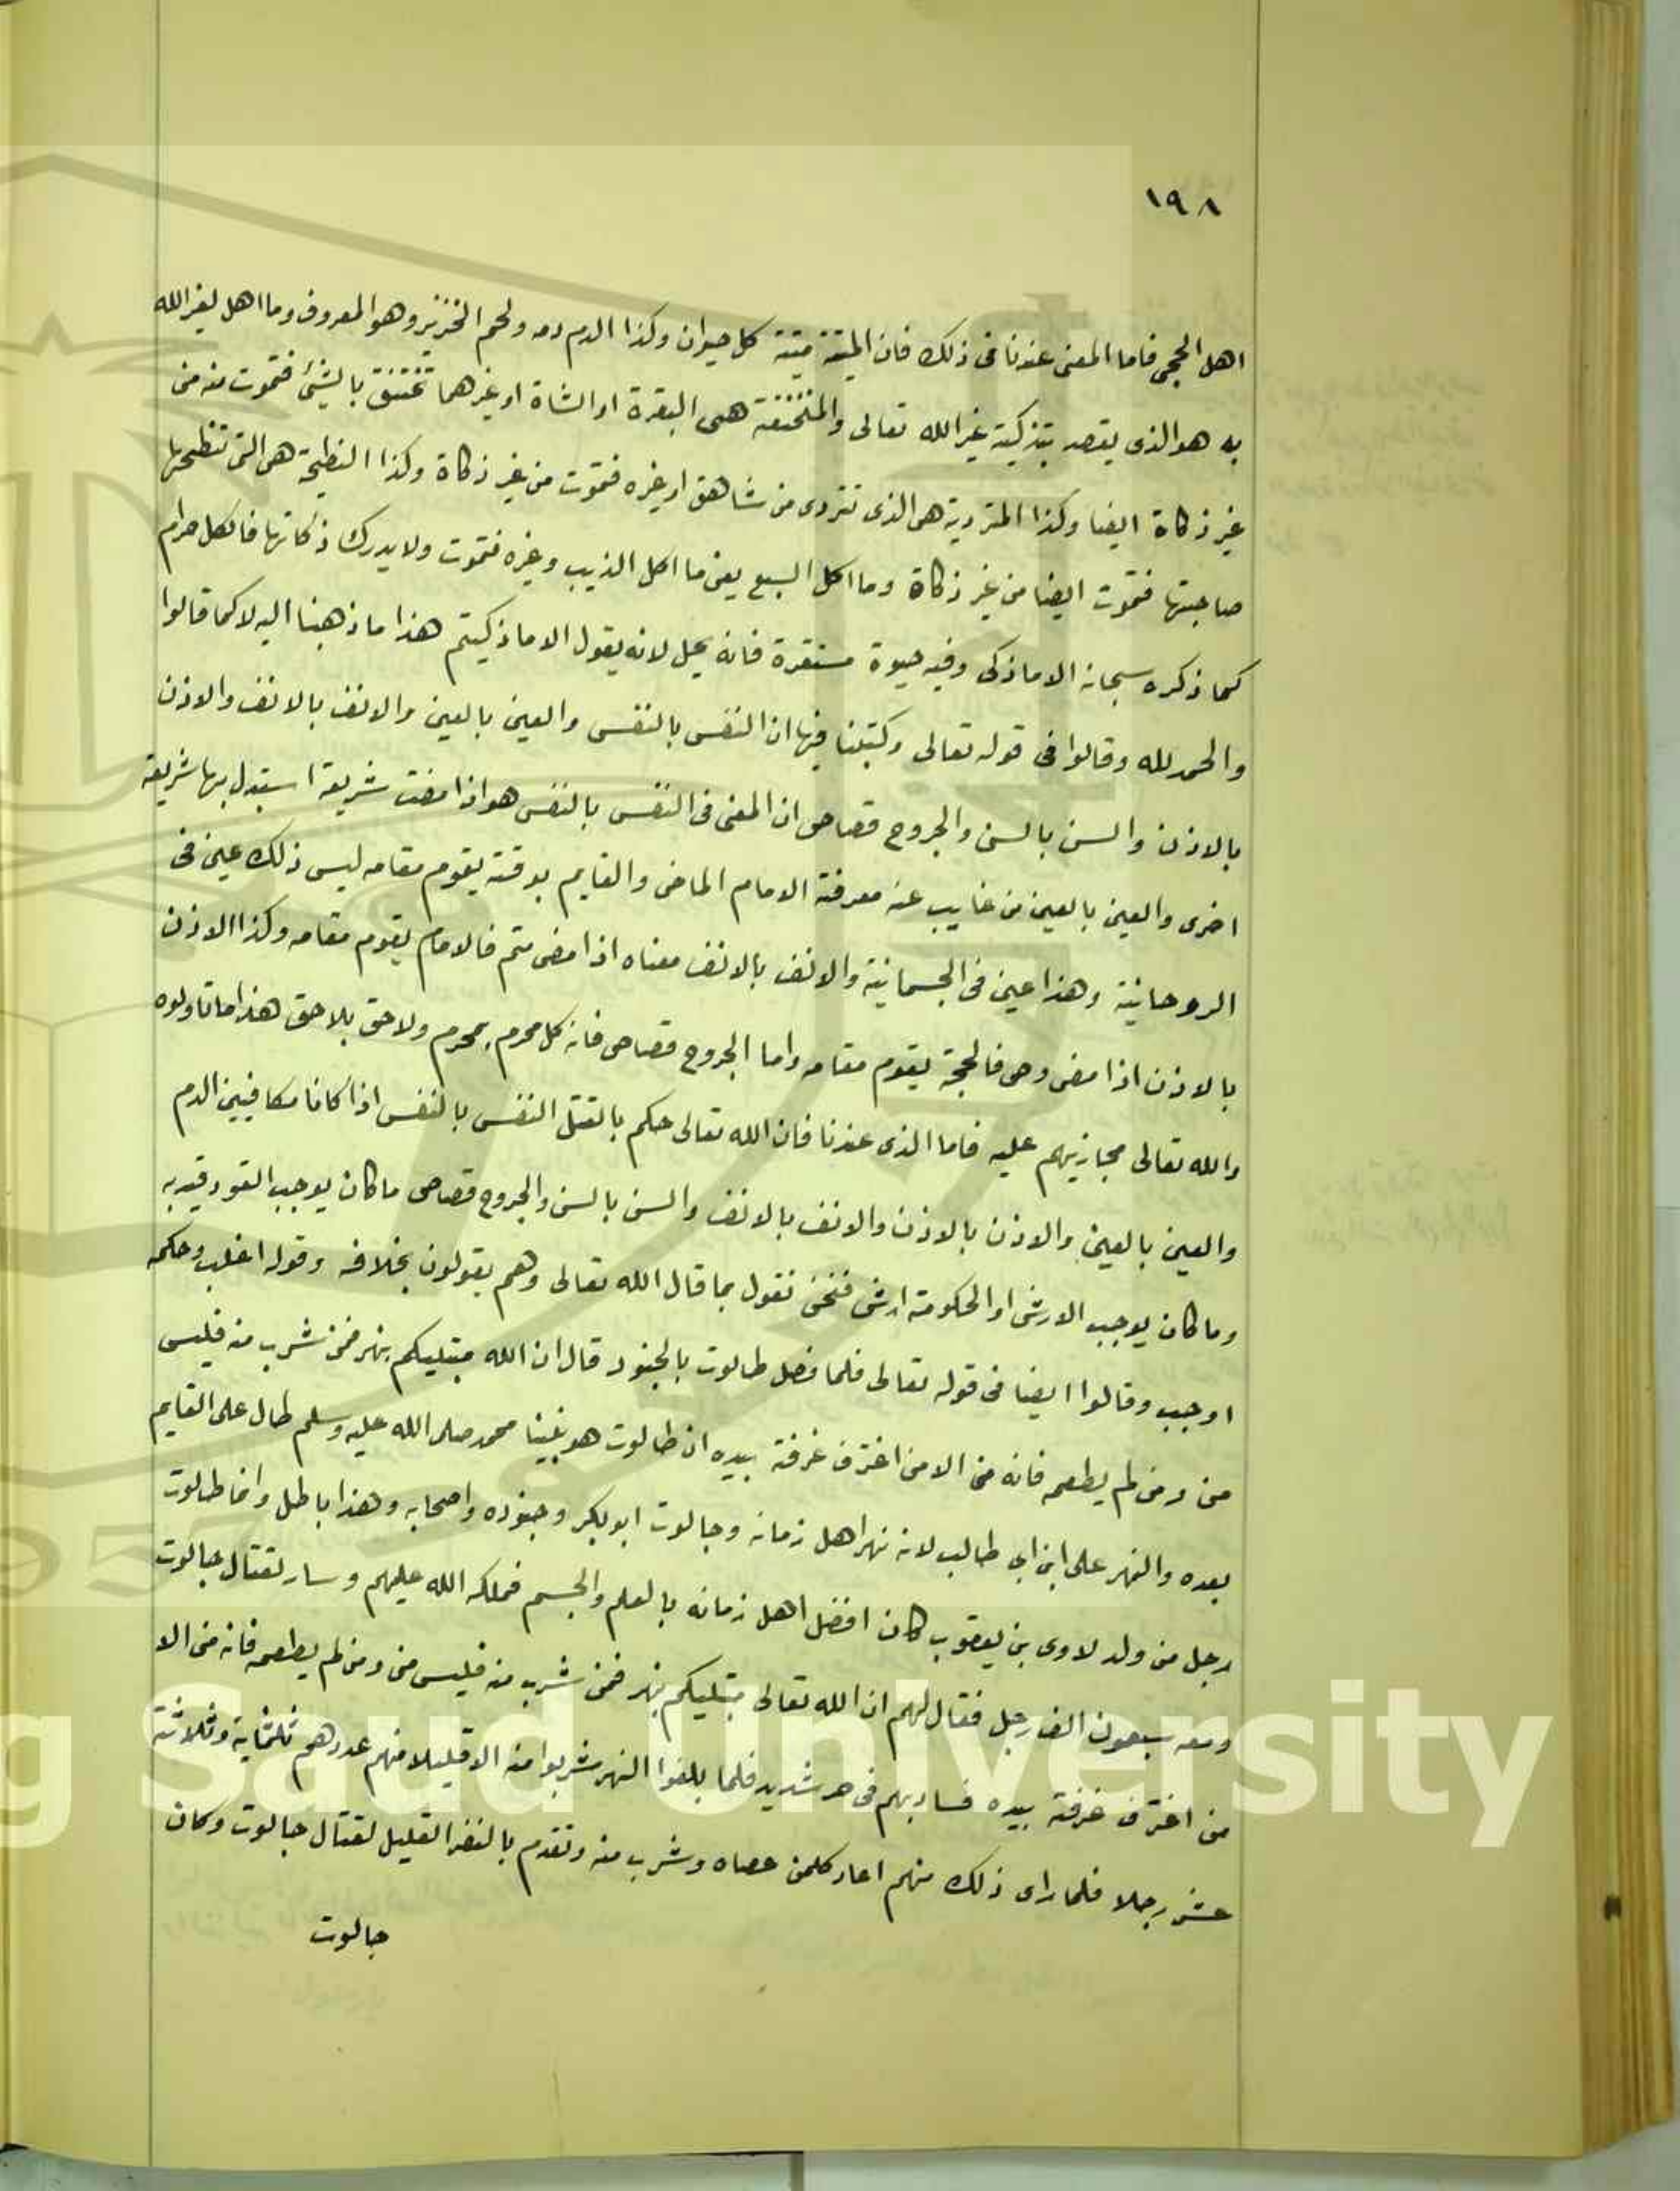 ١٩٨
اهل الحجى فاما المعنى عندنا فى ذلك فان الميتة ميتة كل حيوان وكذا الدم دمه ولحم الخنزير وهو المعروف وما اهل لغير الله
به هو الذى يقصد بتذكيته غير الله تعالى والمنخنقة هى البقرة او الشاة او غيرهما تختنق بالشئ فتموت منه من
غير ذكاة ايضا وكذا المتردية هى الذى تتردى من شاهق او غيره فتموت من غير ذكاة وكذا النطيحة هى التى تنطحها
صاحبتها فتموت ايضا من غير ذكاة وما اكل السبع يعنى ما اكل الذيب وغيره فتموت ولا يدرك ذكاتها فالكل حرام
كما ذكره سبحانه الا ما ذكى وفيه حيوة مستقرة فانه يحل لانه يقول الا ما ذكيتم هذا ما ذهبنا اليه لا كما قالوا
والحمد لله وقالوا فى قوله تعالى وكتبنا فيها ان النفس بالنفس والعين بالعين والانف بالانف والاذن
بالاذن والسن بالسن والجروح قصاص ان المعنى فى النفس بالنفس هو اذا مضت شريعة استبدل بها شريعة
اخرى والعين بالعين من غايب عنه معرفة الامام الماضى والقايم بوقته يقوم مقامه ليس ذلك عين فى
الروحانية وهذا عين فى الجسمانية والانف بالانف معناه اذا مضى متم فالامام يقوم مقامه وكذا الاذن
بالاذن اذا مضى وصى فالحجة يقوم مقامه واما الجروح قصاص فانه كل محرم بمحرم ولاحق بلاحق هذا ما تاولوه
والله تعالى مجازيهم عليه فاما الذى عندنا فان الله تعالى حكم بالقتل النفس بالنفس اذا كانا مكافيين الدم
والعين بالعين والاذن بالاذن والانف بالانف والسن بالسن والجروح قصاص ما كان يوجب القود قيد به
وما كان يوجب الارش او الحكومة ارش فنحن نقول بما قال الله تعالى وهم يقولون بخلافه وقوله اغلب وحكمه
اوجب وقالوا ايضا فى قوله تعالى فلما فصل طالوت بالجنود قال ان الله مبتليكم بنهر فمن شرب منه فليس
منى ومن لم يطعمه فانه منى الا من اغترف غرفة بيده ان طالوت هو نبينا محمد صلى الله عليه وسلم طال على القايم
بعده والنهر على ابن ابى طالب لانه نهر اهل زمانه وجالوت ابو بكر وجنوده واصحابه وهذا باطل وانما طالوت
رجل من ولد لاوى بن يعقوب كان افضل اهل زمانه بالعلم والجسم فملكه الله عليهم وسار لقتال جالوت
ومعه سبعون الف رجل فقال لهم ان الله تعالى مبتليكم بنهر فمن شرب منه فليس منى ومن لم يطعمه فانه منى الا
من اغترف غرفة بيده فسار بهم فى حر شديد فلما بلغوا النهر شربوا منه الا قليلا منهم عددهم ثلثماية وثلاثة
عشر رجلا فلما راى ذلك منهم اعاد كلمن عصاه وشرب منه وتقدم بالنفر القليل لقتال جالوت وكان
جالوت
g Saud University